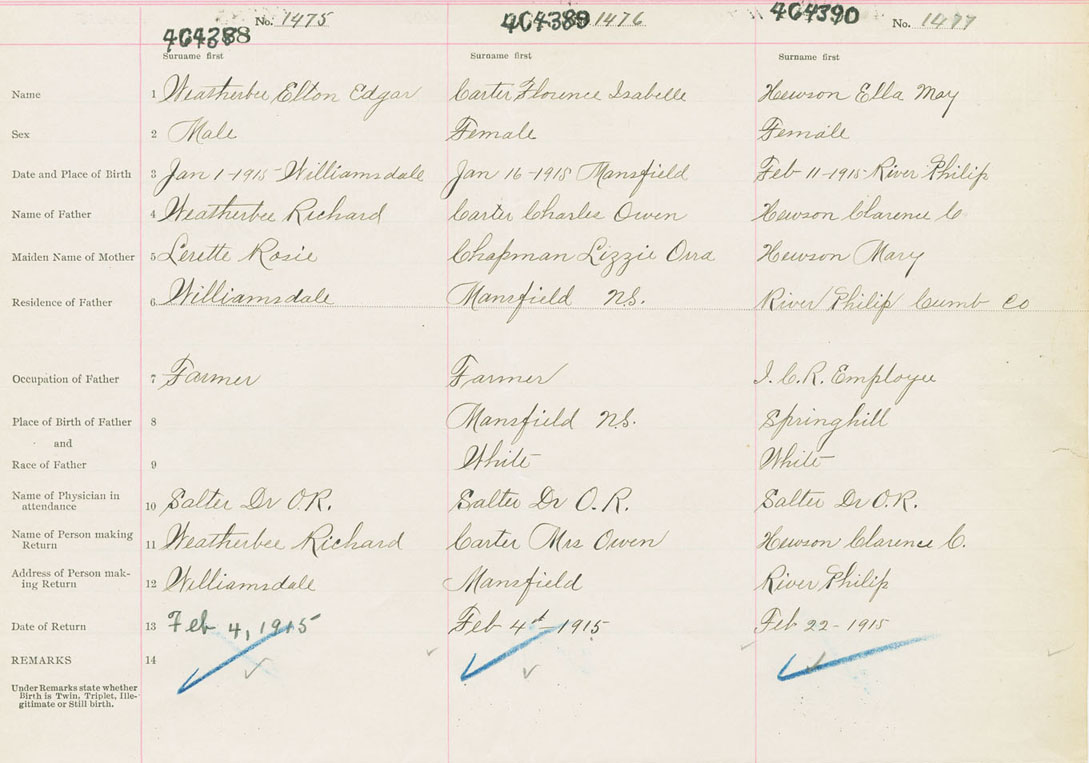 No. 1475 404389 1476 404390 No. 1477
404388
Surname first Surname first Surname first
Name 1 Weatherbee Elton Edgar Carter Florence Isabelle Hewson Ella May
Sex 2 Male Female Female
Date and Place of Birth 3 Jan 1-1915- Williamsdale Jan 16-1915 Mansfield Feb 11-1915- River Philip
Name of Father 4 Weatherbee Richard Carter Charles Owen Hewson Clarence C
Maiden Name of Mother 5 Rosie Chapman Lizzie Orra Hewson Mary
Residence of Father 6 Williamsdale Mansfield N.S. River Philip Cumb Co
Occupation of Father 7 Farmer Farmer I.C.R. Employee
Place of Birth of Father 8 Mansfield N.S. Springhill
and
Race of Father 9 White White
Name of Physician in
attendance 10 Salter Dr O.R. Salter Dr O.R. Salter Dr O.R.
Name of Person making
Return 11 Weatherbee Richard Carter Mrs Owen Hewson Clarence C.
Address of Person mak-
ing Return 12 Williamsdale Mansfield River Philip
Date of Return 13 Feb 4, 1915 Feb 4th 1915 Feb 22-1915
REMARKS 14
Under Remarks state whether
Birth is Twin, Triplet, Ille-
gitimate or Still birth.